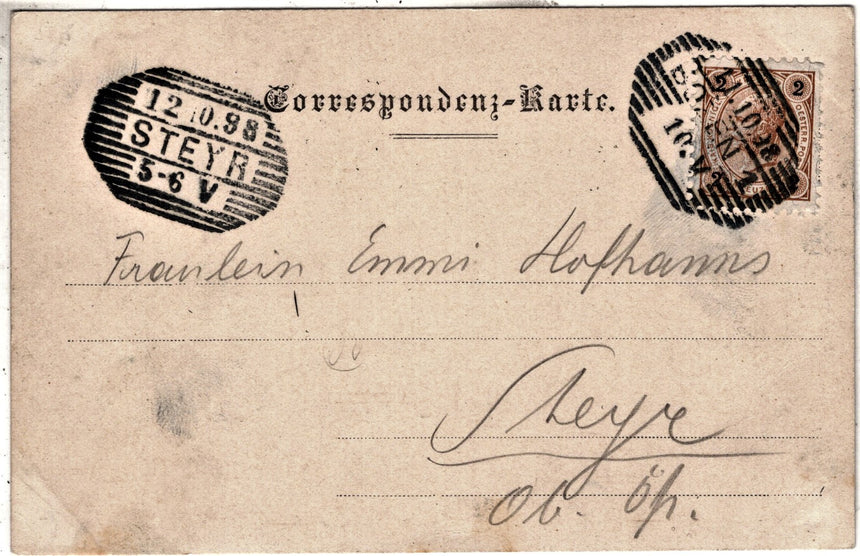 Correspondenz-Karte.
12.10.98
STEYR
5-6 V
11.10.98
10.V
2 2
2
Fräulein Emmi Hofhanns
Steyr
Ob. Öst.